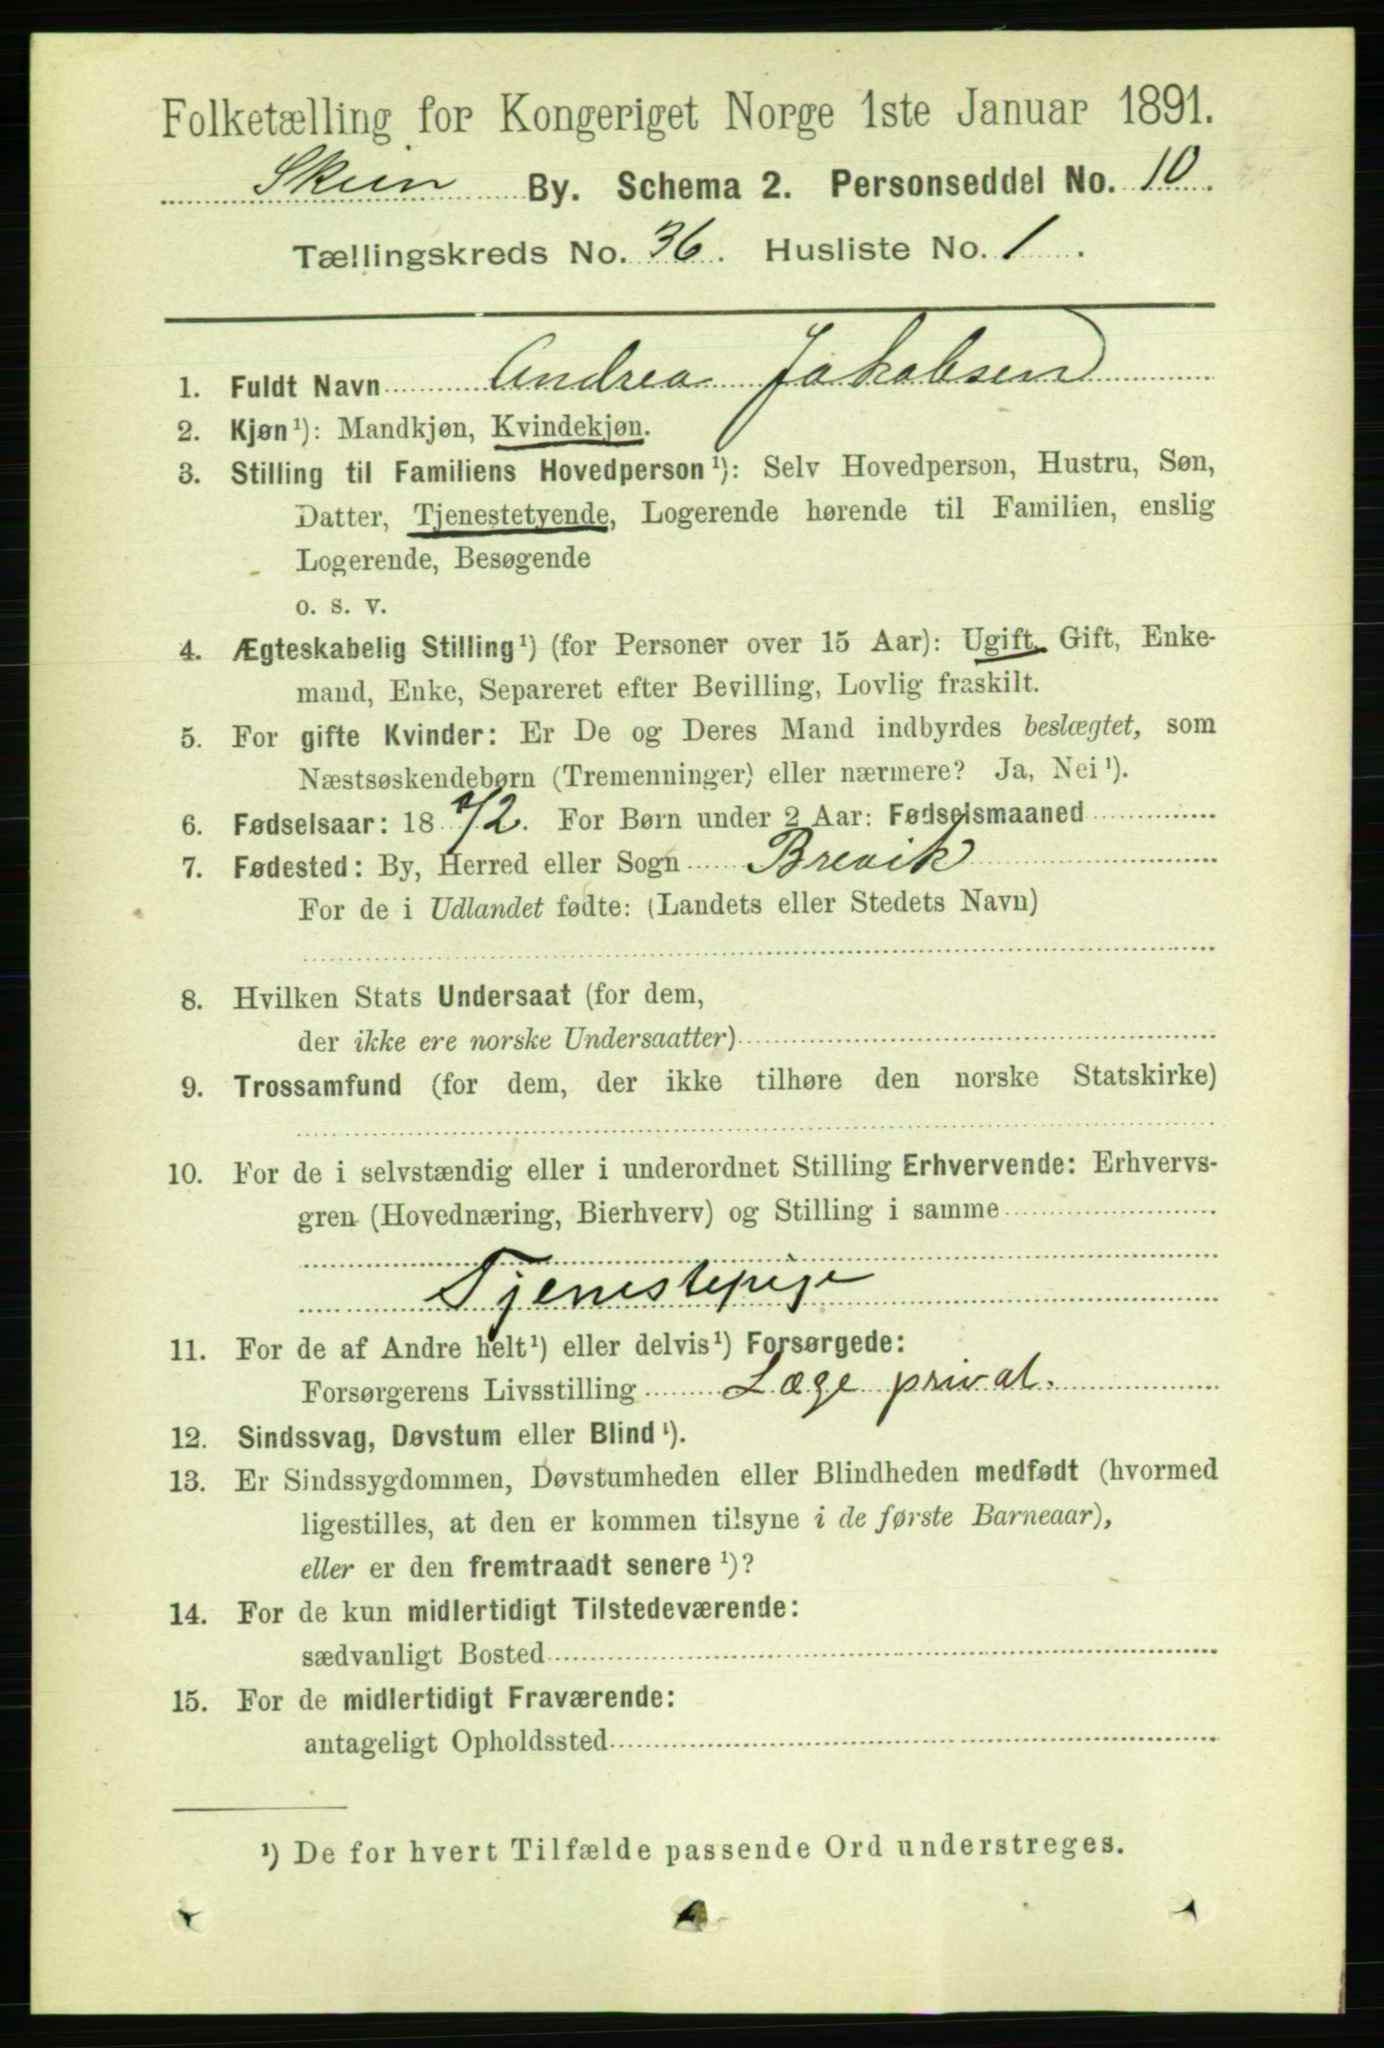 Folketælling for Kongeriget Norge 1ste Januar 1891.
Skien By. Schema 2. Personseddel No. 10.
Tællingskreds No. 36. Husliste No. 1.
1. Fuldt Navn Andrea Jakobsen
2. Kjøn¹): Mandkjøn, Kvindekjøn.
3. Stilling til Familiens Hovedperson¹): Selv Hovedperson, Hustru, Søn,
Datter, Tjenestetyende, Logerende hørende til Familien, enslig
Logerende, Besøgende
o. s. v.
4. Ægteskabelig Stilling¹) (for Personer over 15 Aar): Ugift, Gift, Enke-
mand, Enke, Separeret efter Bevilling, Lovlig fraskilt.
5. For gifte Kvinder: Er De og Deres Mand indbyrdes beslægtet, som
Næstsøskendebørn (Tremenninger) eller nærmere? Ja, Nei¹).
6. Fødselsaar: 1872. For Børn under 2 Aar: Fødselsmaaned
7. Fødested: By, Herred eller Sogn Brevik
For de i Udlandet fødte: (Landets eller Stedets Navn)
8. Hvilken Stats Undersaat (for dem,
der ikke ere norske Undersaatter)
9. Trossamfund (for dem, der ikke tilhøre den norske Statskirke)
10. For de i selvstændig eller i underordnet Stilling Erhvervende: Erhvervs-
gren (Hovednæring, Bierhverv) og Stilling i samme
Tjenestepige
11. For de af Andre helt¹) eller delvis¹) Forsørgede:
Forsørgerens Livsstilling Læge privat.
12. Sindssvag, Døvstum eller Blind¹).
13. Er Sindssygdommen, Døvstumheden eller Blindheden medfødt (hvormed
ligestilles, at den er kommen tilsyne i de første Barneaar),
eller er den fremtraadt senere¹)?
14. For de kun midlertidigt Tilstedeværende:
sædvanligt Bosted
15. For de midlertidigt Fraværende:
antageligt Opholdssted
¹) De for hvert Tilfælde passende Ord understreges.